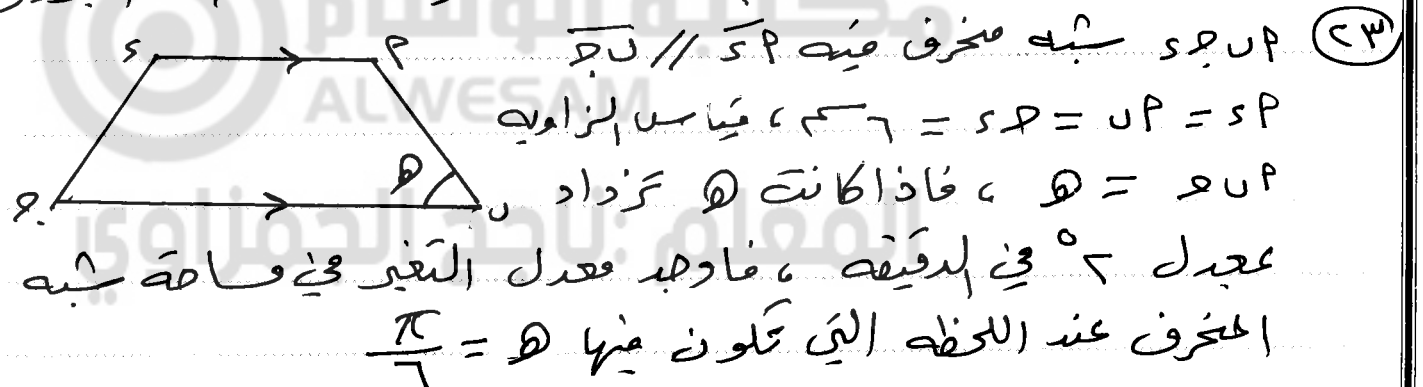 (٢٣) أ ب جـ د شبه منحرف فيه أد // ب جـ
أد = أب = جـ د = ٦سم ، قياس الزاويه
أ ب جـ = هـ ، فاذا كانت هـ تزداد
بمعدل ٢° في الدقيقه ، فاوجد معدل التغير في مساحة شبه
المنحرف عند اللحظه التي تكون فيها هـ = π/٦
د أ
هـ
جـ ب
ALWESAM
المعلم : ناجح الجمزاوي